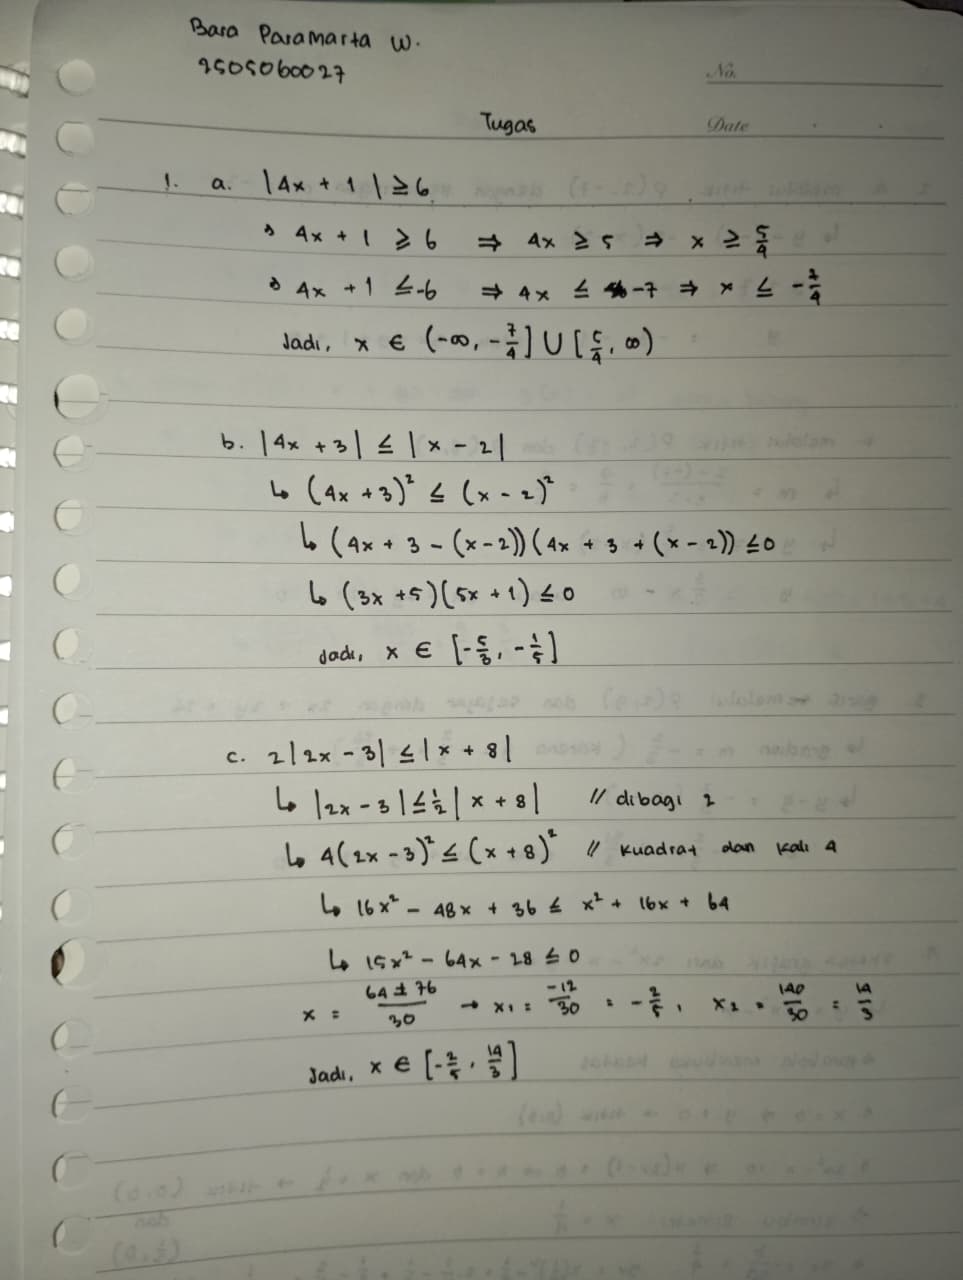 Bara Paramarta W.
2505060027
No.
Tugas
Date
1. a. |4x + 1| ≥ 6
4x + 1 ≥ 6 ⇒ 4x ≥ 5 ⇒ x ≥ 5/4
4x + 1 ≤ -6 ⇒ 4x ≤ -7 ⇒ x ≤ -7/4
Jadi, x ∈ (-∞, -7/4] ∪ [5/4, ∞)
b. |4x + 3| ≤ |x - 2|
↳ (4x + 3)² ≤ (x - 2)²
↳ (4x + 3 - (x - 2)) (4x + 3 + (x - 2)) ≤ 0
↳ (3x + 5)(5x + 1) ≤ 0
Jadi, x ∈ [-5/3, -1/5]
c. 2|2x - 3| ≤ |x + 8|
↳ |2x - 3| ≤ 1/2 |x + 8| // dibagi 2
↳ 4(2x - 3)² ≤ (x + 8)² // kuadrat dan kali 4
↳ 16x² - 48x + 36 ≤ x² + 16x + 64
↳ 15x² - 64x - 28 ≤ 0
x = (64 ± 76)/30 → x₁ = -12/30 = -2/5, x₂ = 140/30 = 14/3
Jadi, x ∈ [-2/5, 14/3]